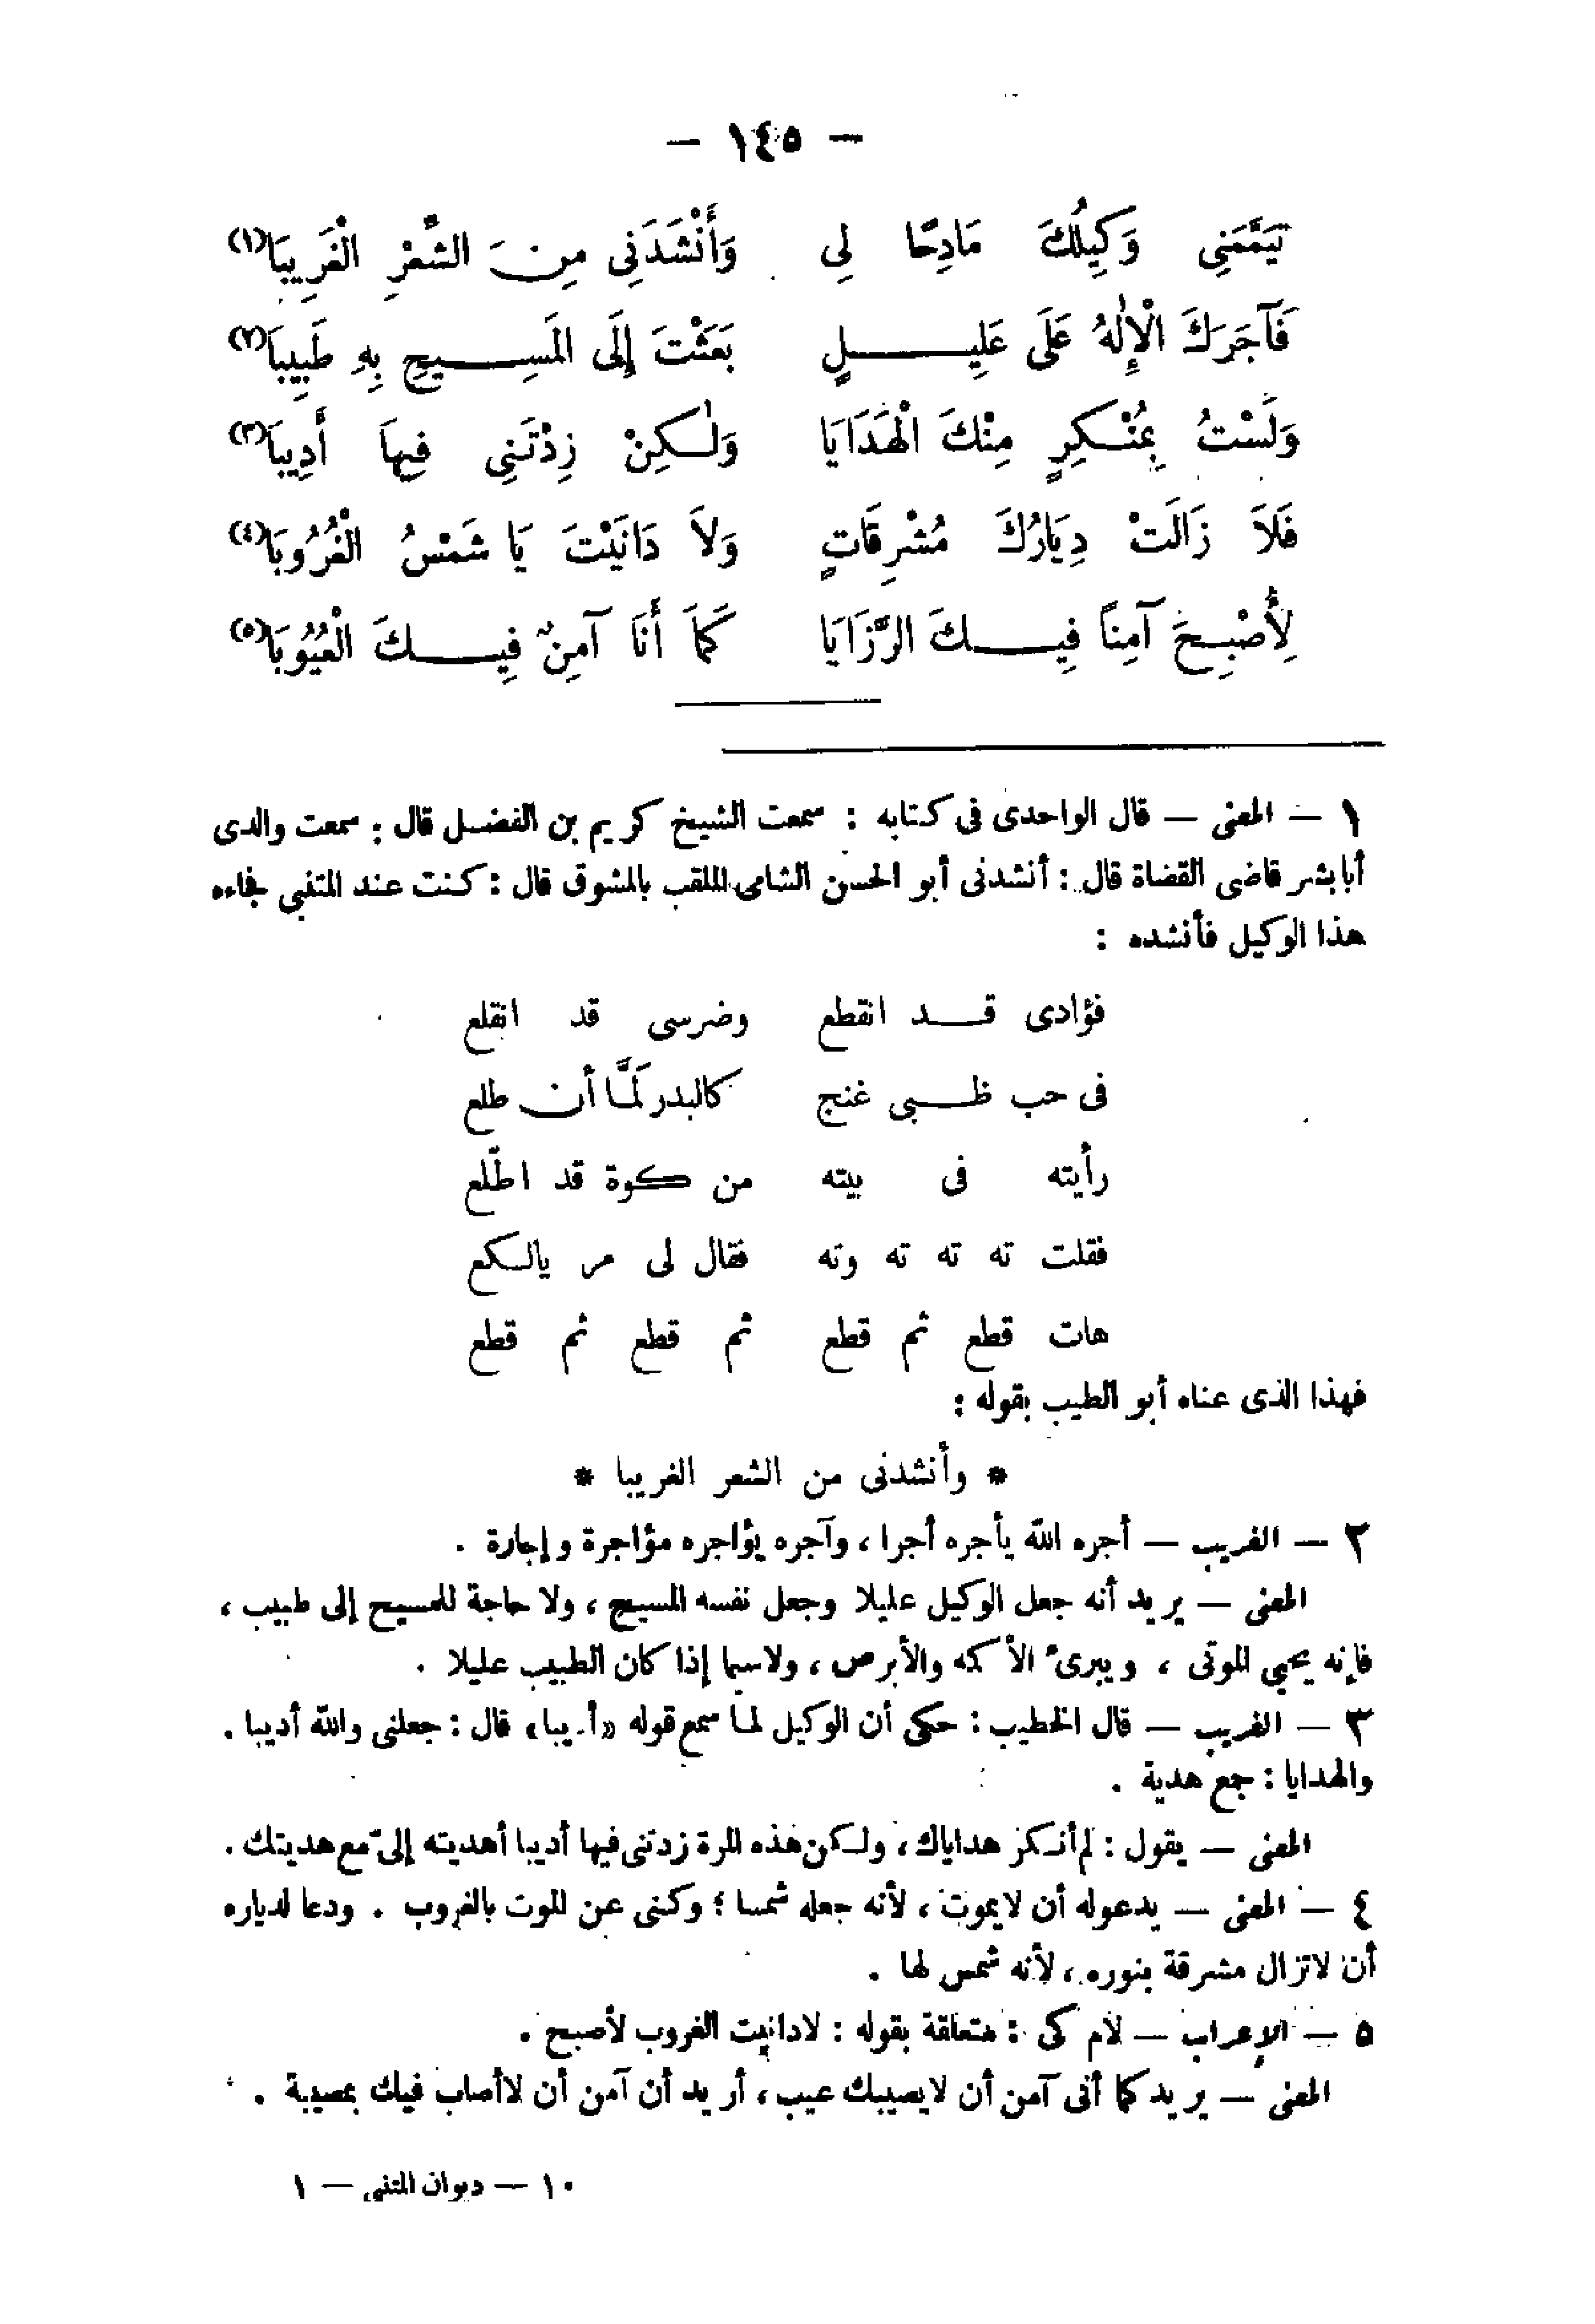 — ١٤٥ —
تَيَمَّمَنِى وَكِيلُكَ مَادِحًا لِى وَأَنْشَدَنِى مِنَ الشِّعْرِ الْغَرِيبَا (١)
فَآجَرَكَ الْإِلٰهُ عَلَى عَلِيـــلٍ بَعَثْتَ إِلَى المَسِـــيحِ بِهِ طَبِيبا (٢)
وَلَسْتُ بِمُنْكِرٍ مِنْكَ الْهَدَايَا وَلٰكِنْ زِدْتَنِى فِيهاَ أَدِيباَ (٣)
فَلاَ زَالَتْ دِيَارُكَ مُشْرِقَاتٍ وَلاَ دَانَيْتَ يَا شَمْسُ الْغُرُوبَا (٤)
لِأُصْبِحَ آمِناً فِيـــكَ الرَّزَايَا كَمَا أَنَا آمِنٌ فِيـــكَ الْعُيُوبَا (٥)
١ — المعنى — قال الواحدى فى كتابه : سمعت الشيخ كريم بن الفضل قال : سمعت والدى
أبا بشر قاضى القضاة قال : أنشدنى أبو الحسن الشامى الملقب بالمشوق قال : كنت عند المتنبى فجاءه
هذا الوكيل فأنشده :
فؤادى قد انقطع وضرسى قد انقلع
فى حب ظبى غنج كالبدر لَمَّا أن طلع
رأيته فى بيته من كوة قد اطّلع
فقلت ته ته ته وته فقال لى مر يالكع
هات قطع ثم قطع ثم قطع ثم قطع
فهذا الذى عناه أبو الطيب بقوله :
* وأنشدنى من الشعر الغريبا *
٢ — الغريب — أجره الله يأجره أجرا ، وآجره يؤاجره مؤاجرة وإجارة .
المعنى — يريد أنه جعل الوكيل عليلا وجعل نفسه المسيح ، ولا حاجة للمسيح إلى طبيب ،
فإنه يحيى الموتى ، ويبرئ الأكمه والأبرص ، ولاسيما إذا كان الطبيب عليلا .
٣ — الغريب — قال الخطيب : حكى أن الوكيل لما سمع قوله «أديبا» قال : جعلنى والله أديبا .
والهدايا : جمع هدية .
المعنى — يقول : لم أنكر هداياك ، ولكن هذه المرة زدتنى فيها أديبا أهديته إلىّ مع هديتك .
٤ — المعنى — يدعو له أن لايموت ، لأنه جعله شمسا ؛ وكنى عن الموت بالغروب . ودعا لدياره
أن لاتزال مشرقة بنوره ، لأنه شمس لها .
٥ — الإعراب — لام كى : متعلقة بقوله : لادانيت الغروب لأصبح .
المعنى — يريد كما أنى آمن أن لايصيبك عيب ، أريد أن آمن أن لاأصاب فيك بمصيبة .
١٠ — ديوان المتنبى — ١